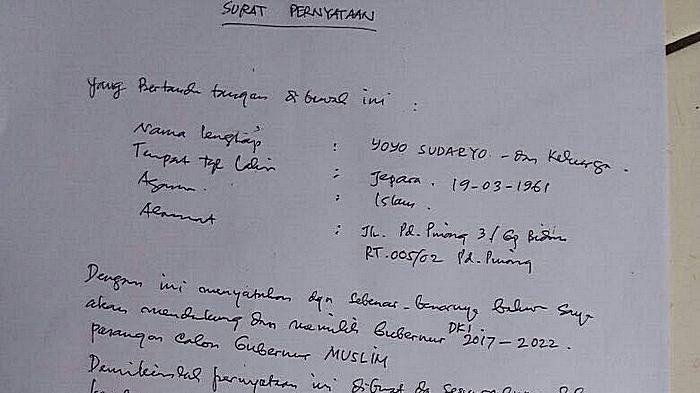 SURAT PERNYATAAN
Yang Bertanda tangan di bawah ini :
Nama lengkap : YOYO SUDARYO - dan Keluarga.
Tempat tgl Lahir : Jepara. 19-03-1961
Agama. : Islam.
Alamat : JL. Pd. Pinang 3 / Gg Bidan
RT. 005/02 Pd. Pinang
Dengan ini menyatakan dgn sebenar-benarnya bahwa saya
akan mendukung dan memilih Gubernur DKI 2017-2022.
pasangan Calon Gubernur MUSLIM
Demikianlah pernyataan ini dibuat